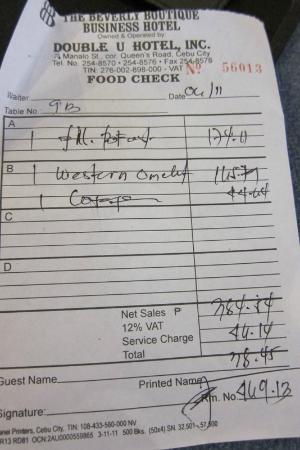 THE BEVERLY BOUTIQUE
BUSINESS HOTEL
Owned & Operated by
DOUBLE U HOTEL, INC.
Manalo St., cor. Queen's Road, Cebu City
Tel. No. 254-8570 • 254-8576 • Fax 254-
TIN: 276-002-898-000 - VAT Nº 56013
FOOD CHECK
Waiter Date 04/11
Table No. 9B
A
1
B 1 Western Omelet
1 44.64
C
D
Net Sales P 384.54
12% VAT 46.14
Service Charge 38.45
Total
Guest Name Printed Name
Signature: Rm. No. 469.13
Printers, Cebu City, TIN: 108-433-560-000 NV
R13 RD81 OCN:2AU0000559865 3-11-11 500 Bks. (50x4) SN. 32,501-57,500